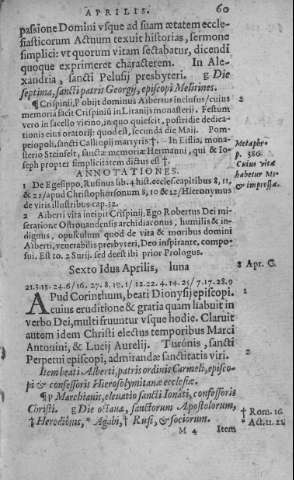 APRILIS. 60
passione Domini vsque ad suam ætatem eccle-
siasticorum Actuum texuit historias, sermone
simplici: vt quorum vitam sectabatur, dicendi
quoque exprimeret characterem. In Ale-
xandria, sancti Pelusij presbyteri. g Die
septima, sancti patris Georgij, episcopi Melitines.
¶ Crispinij, P obijt dominus Aibertus inclusus / cuius
memoria fuit Crispinij in Litanijs monasterij. Festum
vero in sacello vicino, in quo quiescit, postridie dedica-
tionis eius oratorij: quod est, secunda die Maij. Pom-
peiopoli, sancti Calliopij martyris †. In Eiflia, mona-
sterio Steinfelt, sanctæ memoriæ Hermanni, qui & Io-
seph propter simplicitatem dictus est †.
2
Metaphr.
p. 386.
Cuius vitæ
habetur Mo
impressa.
ANNOTATIONES.
1 De Egesippo, Rufinus lib. 4 hist. ecclesiast. capitibus 8, 11,
& 21 / apud Christophorsonum 8, 10 & 12 / Hieronymus
de viris illustribus cap. 32.
2 Aiberti vita incipit Crispinij, Ego Robertus Dei mi-
seratione Ostrouandensis archidiaconus, humilis & in-
dignus, opusculum quod de vita & moribus domini
Aiberti, venerabilis presbyteri, Deo inspirante, compo-
sui. Est to. 2 Surij. sed deest ibi prior Prologus.
Sexto Idus Aprilis, luna
8 Apr. G.
21. 3. 15. 2. 4. 6 / 16. 27. 8. 19. 1 / 12. 22. 4. 14. 25 / 7. 17. 28. 9
Apud Corinthum, beati Dionysij episcopi,
cuius eruditione & gratia quam habuit in
verbo Dei, multi fruuntur vsque hodie. Claruit
autem idem Christi electus temporibus Marci
Antonini, & Lucij Aurelij. Turonis, sancti
Perpetui episcopi, admirandæ sanctitatis viri.
Item beati Alberti, patris ordinis Carmeli, episco-
pi & confessoris Hierosolymitanæ ecclesiæ.
¶ P Marchianis, eleuatio sancti Ionati, confessoris
Christi. g Die octaua, sanctorum Apostolorum,
† Herodionis, * Agabi, † Rufi, & sociorum.
† Rom. 16.
* Act. 11. 21
M 4 Item